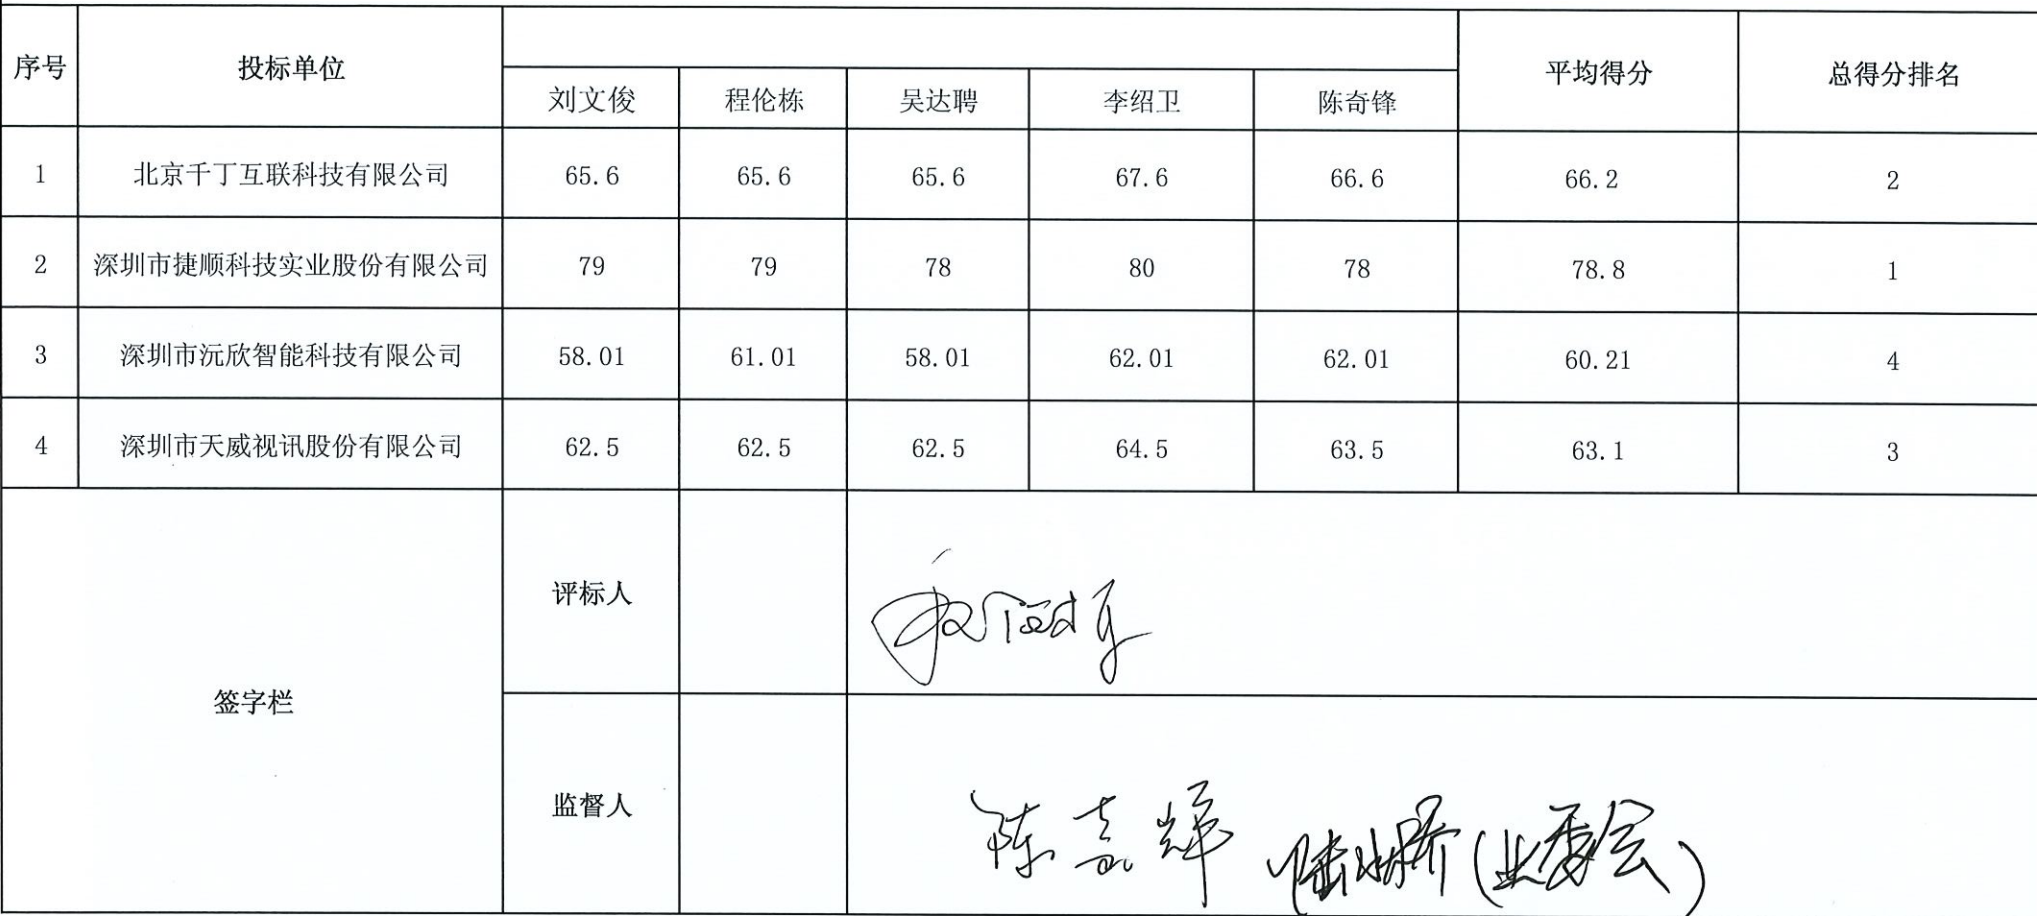 序号 投标单位 平均得分 总得分排名
刘文俊 程伦栋 吴达聘 李绍卫 陈奇锋
1 北京千丁互联科技有限公司 65.6 65.6 65.6 67.6 66.6 66.2 2
2 深圳市捷顺科技实业股份有限公司 79 79 78 80 78 78.8 1
3 深圳市沅欣智能科技有限公司 58.01 61.01 58.01 62.01 62.01 60.21 4
4 深圳市天威视讯股份有限公司 62.5 62.5 62.5 64.5 63.5 63.1 3
签字栏
评标人
监督人 陈嘉辉 (业委会)